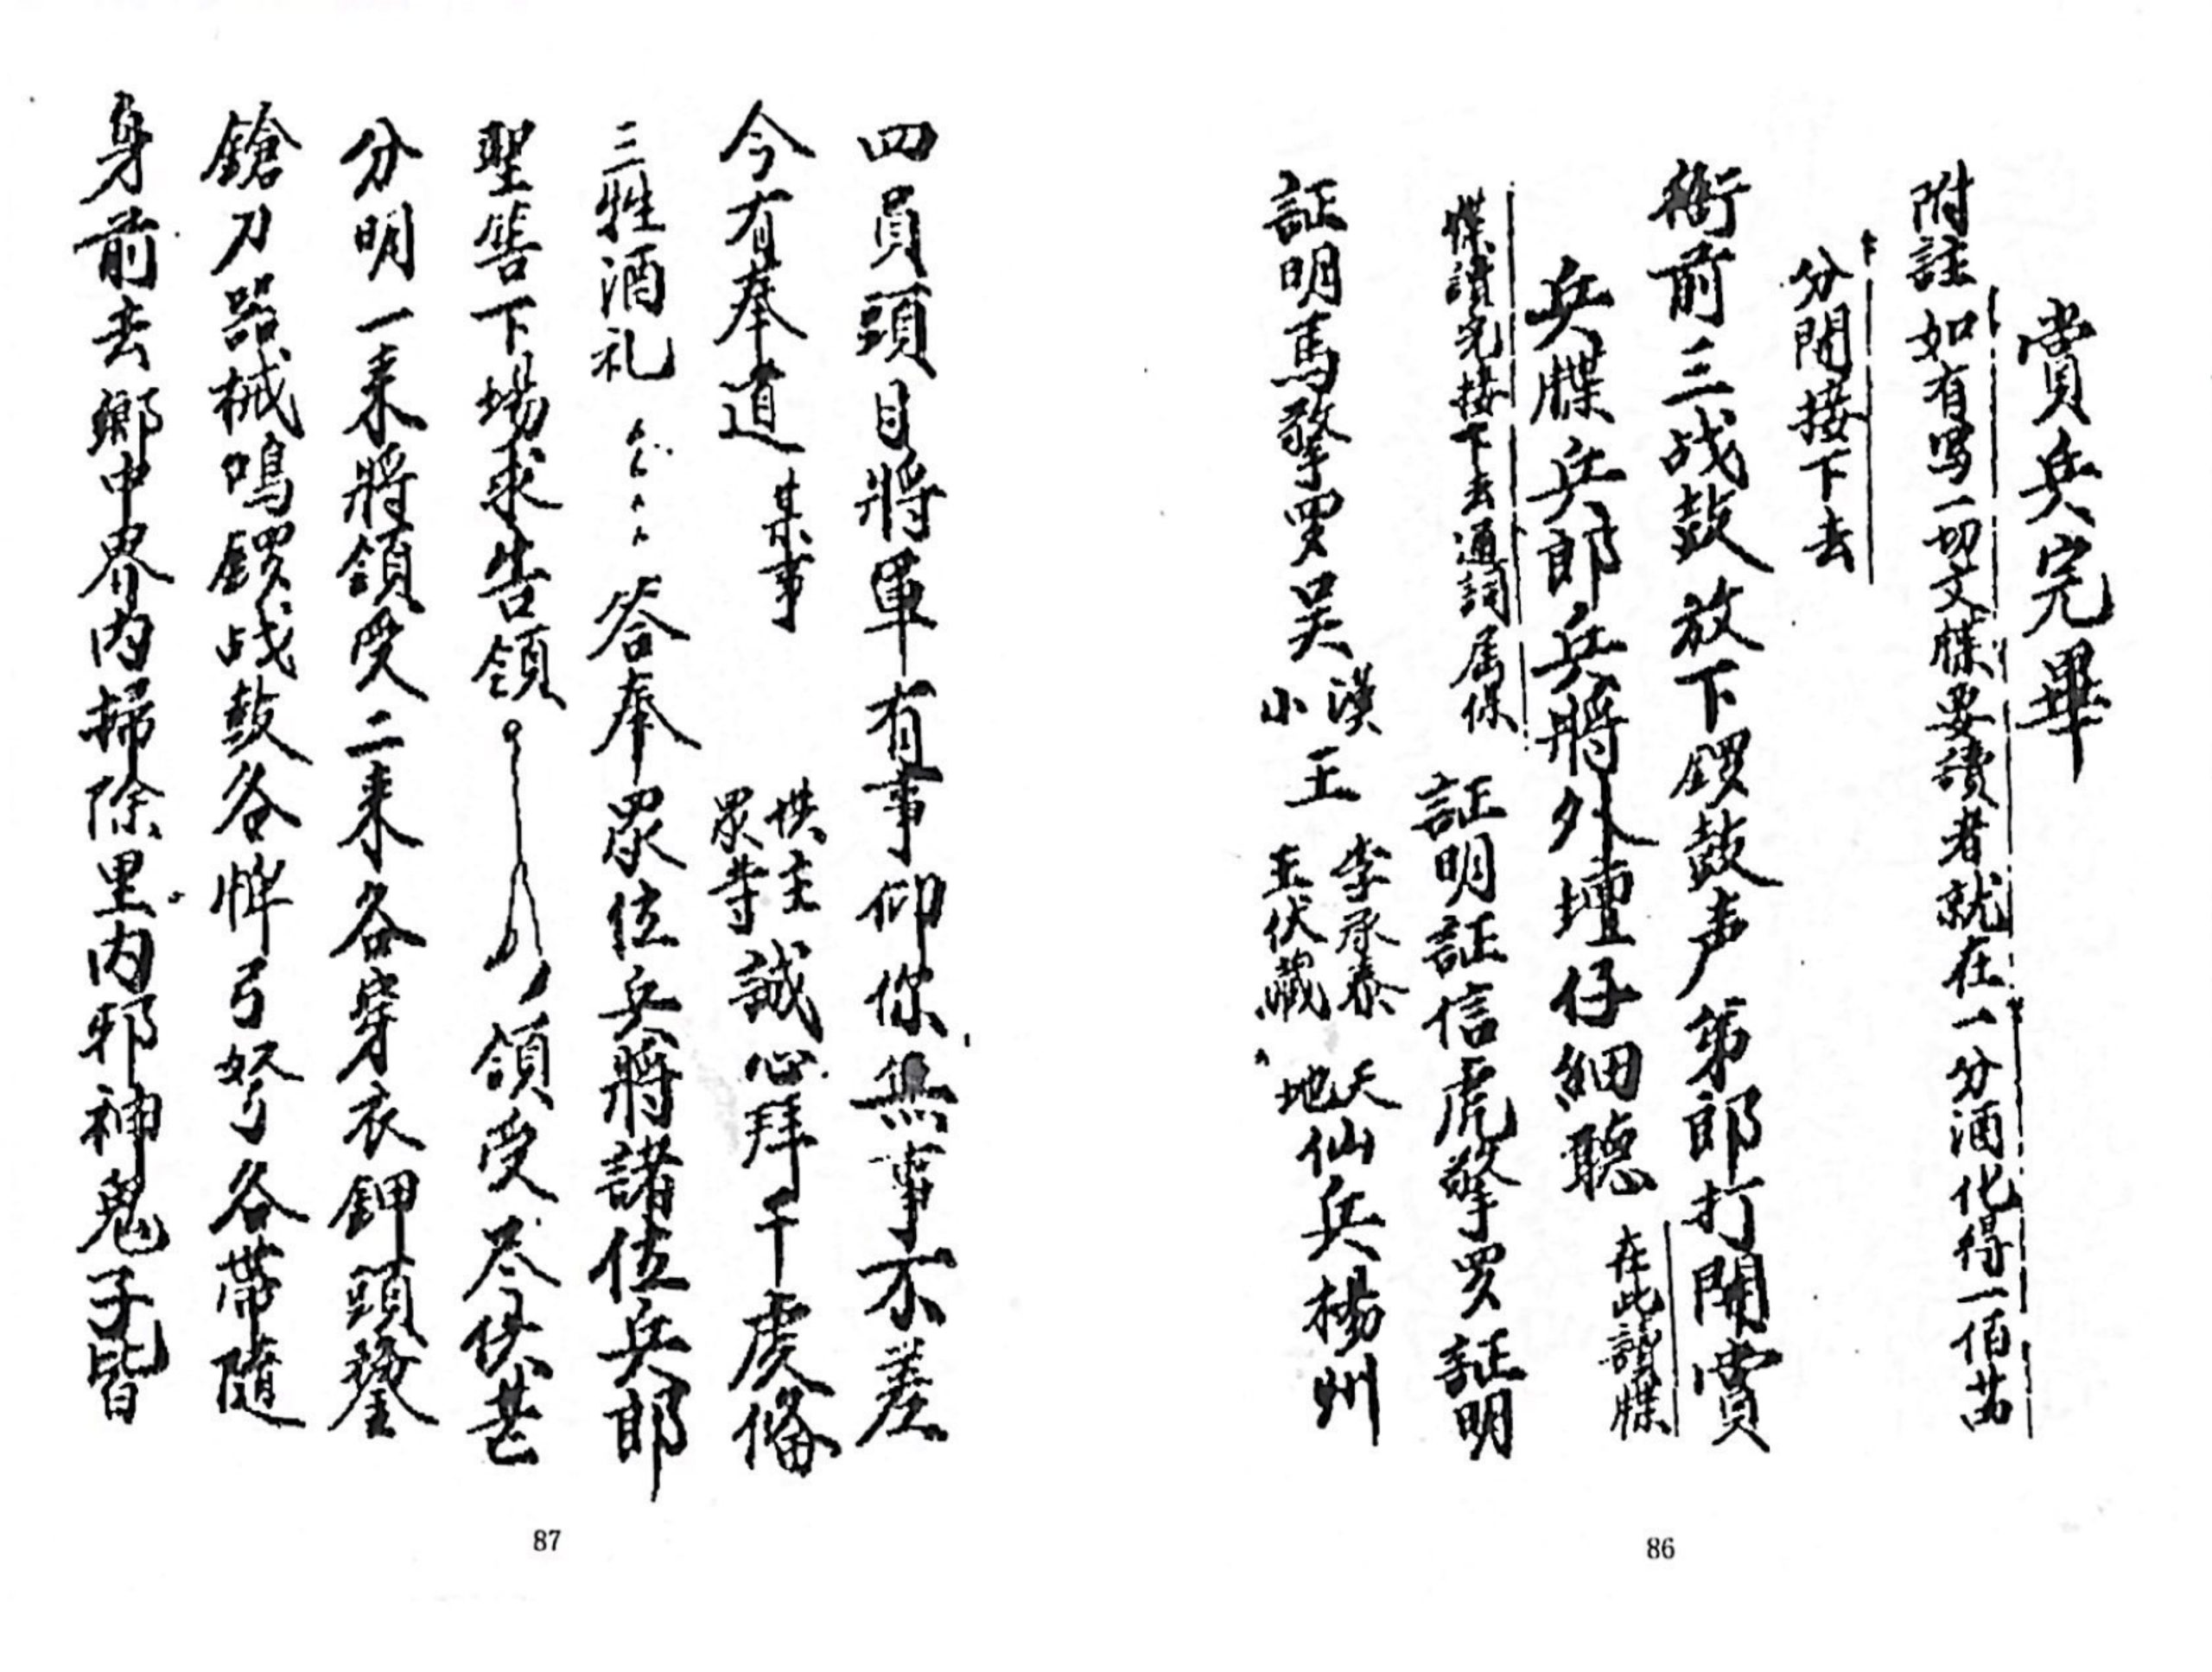 賞兵完畢
附註 如有写一切文牒要讀者就在一分酒化得一佰苗
分開接下去
衙前三战鼓放下鑼鼓声弟郎打開賞
兵牒兵郎兵將外壇仔細聽 在此讀牒
牒讀完接下去通詞 属保 証明証信虎擎罗証明
証明馬擎罗吴 漢小 王 李承泰 王伏藏 天地仙兵楊州
86
四員頭目將軍有事仰你無事不差
今有奉道 某事 眾等 誠心拜干虔俻
三牲酒礼 答奉眾位兵將諸位兵郎
聖筶下場求告領 領受尽伏
分明一来將領受二来各穿衣鉀頭
鎗刀器械鳴鑼战鼓各 弓弩各帶隨
身前去鄉中界内掃除里内邪神鬼子皆
87